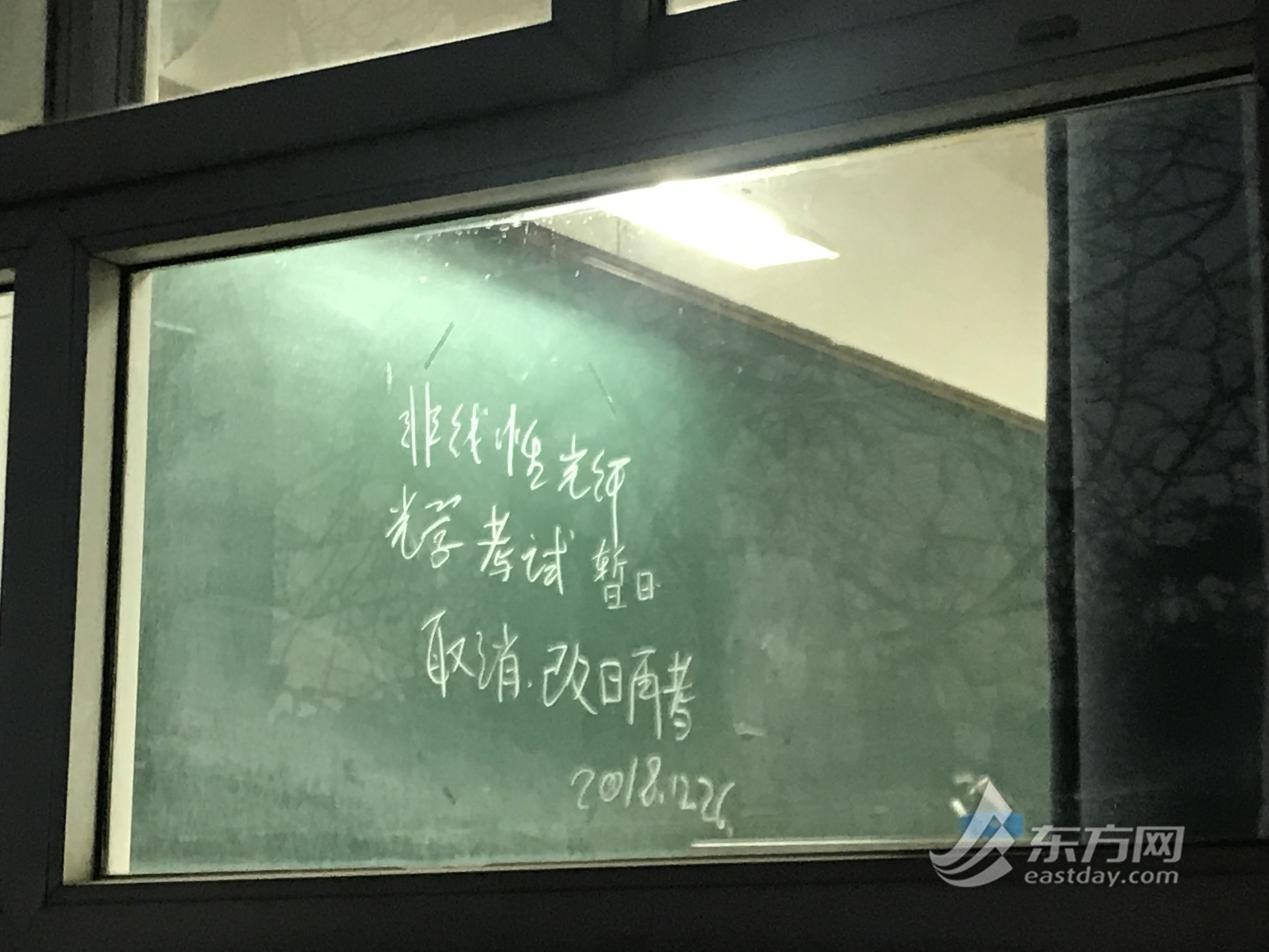 非线性光纤
光学考试暂日
取消.改日再考
2018.12.26
东方网
eastday.com